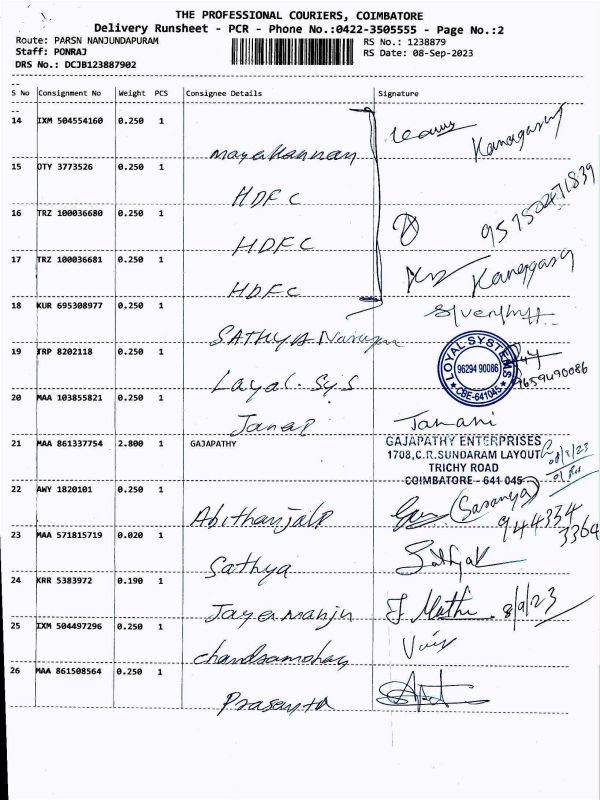 THE PROFESSIONAL COURIERS, COIMBATORE
Delivery Runsheet - PCR - Phone No.:0422-3505555 - Page No.:2
Route: PARSN NANJUNDAPURAM
RS No.: 1238879
Staff: PONRAJ
RS Date: 08-Sep-2023
DRS No.: DCJB123887902
S No Consignment No Weight PCS Consignee Details Signature
14 IXM 504554160 0.250 1
mayakannan
Kanagaraj
15 OTY 3773526 0.250 1
HDFC
16 TRZ 100036680 0.250 1
HDFC
17 TRZ 100036681 0.250 1
HDFC
18 KUR 695308977 0.250 1
SATHYA Narayan
19 TRP 8202118 0.250 1
Loyal. Sys
LOYAL SYSTEMS
96294 90086
CBE-641045
9659490086
20 MAA 103855821 0.250 1
Janani
21 MAA 861337754 2.800 1 GAJAPATHY
GAJAPATHY ENTERPRISES
1708,C.R.SUNDARAM LAYOUT
TRICHY ROAD
COIMBATORE - 641 045
22 AWY 1820101 0.250 1
(Saranya)
23 MAA 571815719 0.020 1
Sathya
24 KRR 5383972 0.190 1
8/9/23
25 IXM 504497296 0.250 1
chandramohan
26 MAA 861508564 0.250 1